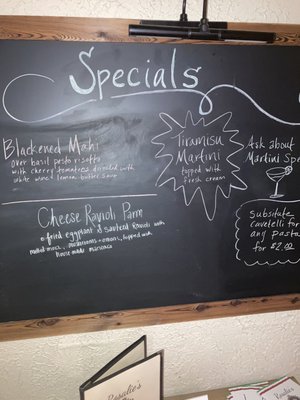 Specials
Blackened Mahi
over basil pesto risotto
with cherry tomatoes drizzled with
white wine & lemon butter sauce
Tiramisu
Martini
topped with
fresh cream
Ask about
Martini Spe
Cheese Ravioli Parm
fried eggplant & sauteed Ravioli with
melted mozz, mushrooms + onions, topped with
house made marinara
Substitute
cavatelli for
any pasta
for $2.00
Rosalie's